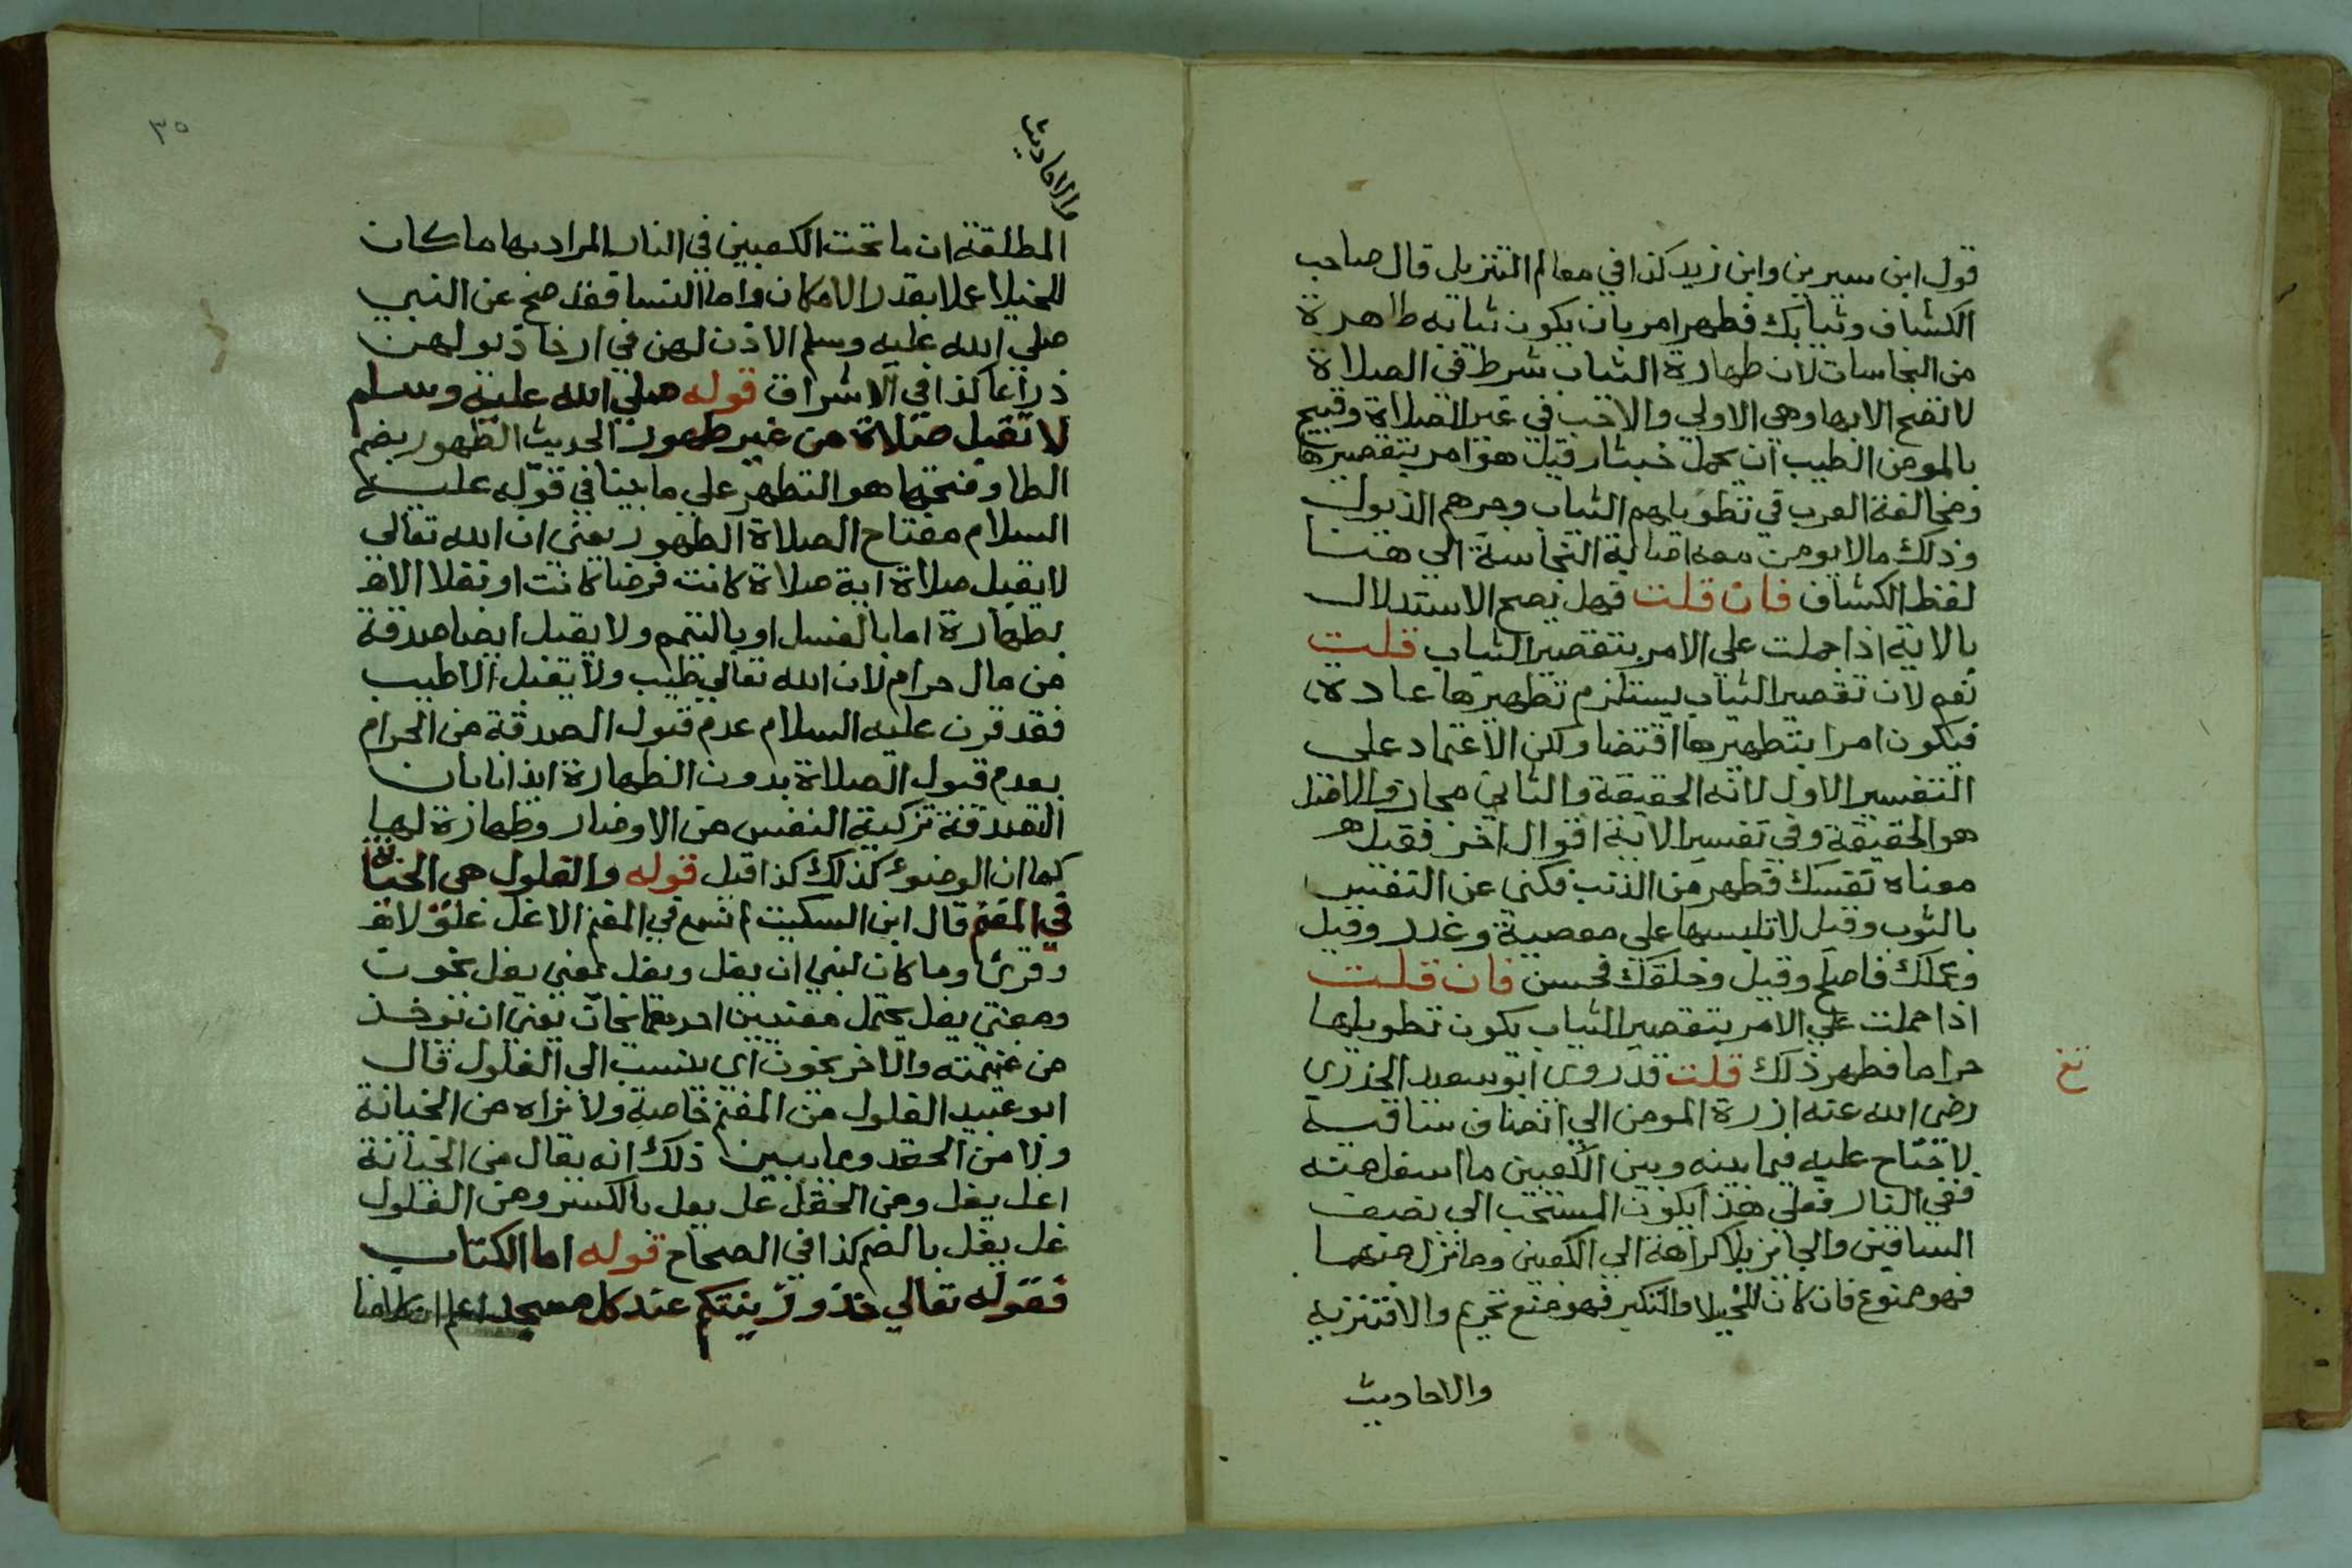 قول ابن سيرين وابن زيد كذا في معالم التنزيل قال صاحب
الكشاف وثيابك فطهر امر بان يكون ثيابه طاهرة
من النجاسات لان طهارة الثياب شرط في الصلاة
لا تصح الا بها وهي الاولي والاحب في غير الصلاة وقبيح
بالمومن الطيب ان يحمل خبثا وقيل هو امر بتقصيرها
ومخالفة العرب في تطويلهم الثياب وجرهم الذيول
وذلك مالا يومن معه اصابة النجاسة الي هنا
لفظ الكشاف فان قلت فهل يصح الاستدلال
بالاية اذا حملت علي الامر بتقصير الثياب قلت
نعم لان تقصير الثياب يستلزم تطهيرها عادة
فيكون امرا بتطهيرها اقتضا ولكن الاعتماد علي
التفسير الاول لانه الحقيقة والثاني مجاز والاصل
هو الحقيقة وفي تفسير الاية اقوال اخر فقيل
معناه نفسك فطهر من الذنب فكني عن النفس
بالثوب وقيل لا تلبسها علي معصية وغدر وقيل
وعملك فاصلح وقيل وخلقك فحسن فان قلت
اذا حملت علي الامر بتقصير الثياب يكون تطويلها
حراما فطهر ذلك قلت قد روي ابو سعيد الخدري
رضي الله عنه ازرة المومن الي انصاف ساقيه
لا جناح عليه فيما بينه وبين الكعبين ما اسفل منه
ففي النار فعلي هذا يكون المستحب الي نصف
الساقين والجايز بلا كراهة الي الكعبين وما نزل منهما
فهو ممنوع فان كان للخيلا والتكبر فهو منع تحريم والا فتنزيه
والاحاديث
٣٥
والاحاديث
المطلقة ان ما تحت الكعبين في النار المراد بها ما كان
للخيلا عملا بقدر الامكان واما النسا فقد صح عن النبي
صلي الله عليه وسلم الاذن لهن في ارخا ذيولهن
ذراعا كذا في الاشراق قوله صلي الله عليه وسلم
لا تقبل صلاة من غير طهور الحديث الطهور بضم
الطا وفتحها هو التطهر علي ما بينا في قوله عليه
السلام مفتاح الصلاة الطهور يعني ان الله تعالي
لا يقبل صلاة اية صلاة كانت فرضا كانت او نفلا الا
بطهارة اما بالغسل او بالتيمم ولا يقبل ايضا صدقة
من مال حرام لان الله تعالي طيب ولا يقبل الا طيب
فقد قرن عليه السلام عدم قبول الصدقة من الحرام
بعدم قبول الصلاة بدون الطهارة ايذانا بان
التصدقة تزكية النفس من الاوضار وطهارة لها
كما ان الوضوء كذلك كذا قيل قوله والغلول هي الخيانة
في المغنم قال ابن السكيت لم نسمع في المغنم الا غل غلولا
وقرئ وما كان لنبي ان يغل ويغل بمعني يغل يخون
ومعني يغل يحتمل معنيين احدهما يخان يعني ان يوخذ
من غنيمته والاخر يخون اي ينسب الي الغلول قال
ابو عبيد الغلول من المغنم خاصة ولا نراه من الخيانة
ولا من الحقد وما يبين ذلك انه يقال من الخيانة
اغل يغل ومن الحقد غل يغل بالكسر ومن الغلول
غل يغل بالضم كذا في الصحاح قوله اما الكتاب
فقوله تعالي خذوا زينتكم عند كل مسجد اعلم ان